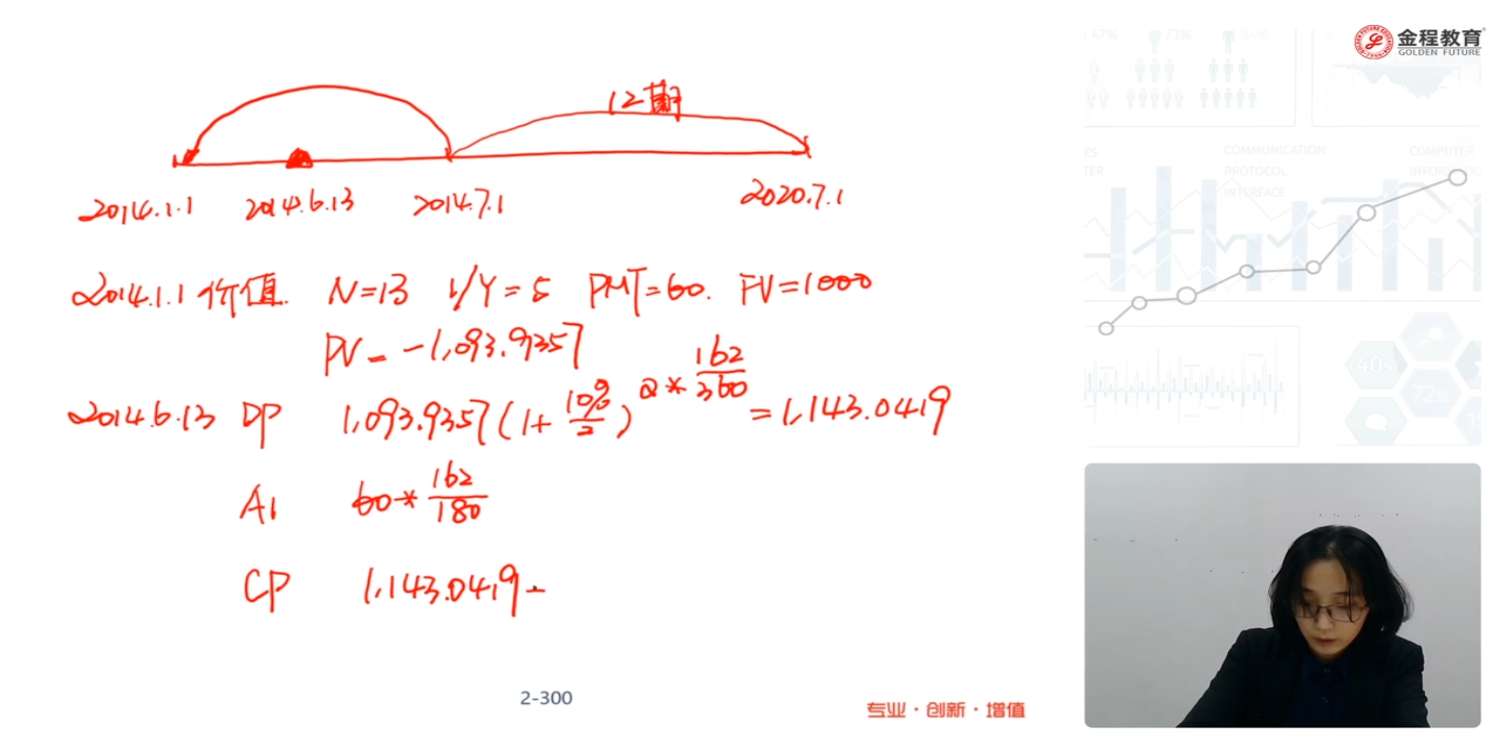 金程教育
GOLDEN FUTURE
12期
2014.1.1 2014.6.13 2014.7.1 2020.7.1
2014.1.1 价值. N=13 I/Y=5 PMT=60. FV=1000
PV=-1,093.9357
2014.6.13 DP 1,093.9357(1+10%/2)^2*162/360=1,143.0419
AI 60*162/180
CP 1,143.0419-
2-300
专业·创新·增值
COMMUNICATION
PROTOCOL
INTERFACE
COMPUTER
40%
72%